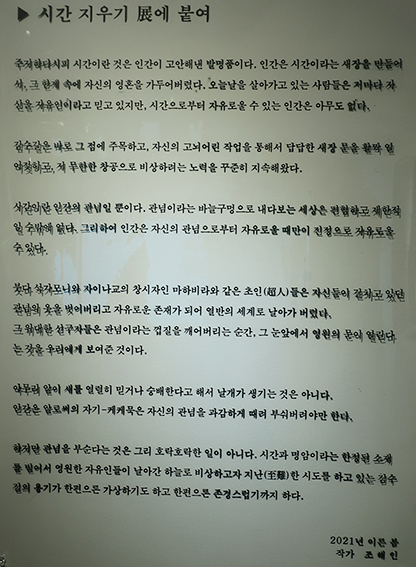 ▶ 시간 지우기 展에 붙여
주지하다시피 시간이란 것은 인간이 고안해낸 발명품이다. 인간은 시간이라는 새장을 만들어
서, 그 한계 속에 자신의 영혼을 가두어버렸다. 오늘날을 살아가고 있는 사람들은 저마다 자
신을 자유인이라고 믿고 있지만, 시간으로부터 자유로울 수 있는 인간은 아무도 없다.
잠수길은 바로 그 점에 주목하고, 자신의 고뇌어린 작업을 통해서 답답한 새장 문을 활짝 열
어젖히고, 저 무한한 창공으로 비상하려는 노력을 꾸준히 지속해왔다.
시간이란 인간의 관념일 뿐이다. 관념이라는 바늘구멍으로 내다보는 세상은 편협하고 제한적
일 수밖에 없다. 그리하여 인간은 자신의 관념으로부터 자유로울 때만이 진정으로 자유로울
수 있다.
붓다 석가모니와 자이나교의 창시자인 마하비라와 같은 초인(超人)들은 자신들이 걸치고 있던
관념의 옷을 벗어버리고 자유로운 존재가 되어 열반의 세계로 날아가 버렸다.
그 위대한 선구자들은 관념이라는 껍질을 깨어버리는 순간, 그 눈앞에서 영원의 문이 열린다
는 것을 우리에게 보여준 것이다.
아무리 알이 새를 열렬히 믿거나 숭배한다고 해서 날개가 생기는 것은 아니다.
인간은 알로써의 자기-케케묵은 자신의 관념을 과감하게 때려 부숴버려야만 한다.
하지만 관념을 부순다는 것은 그리 호락호락한 일이 아니다. 시간과 명암이라는 한정된 소재
를 빌어서 영원한 자유인들이 날아간 하늘로 비상하고자 지난(至難)한 시도를 하고 있는 잠수
길의 용기가 한편으론 가상하기도 하고 한편으론 존경스럽기까지 하다.
2021년 이른 봄
작가 조해인